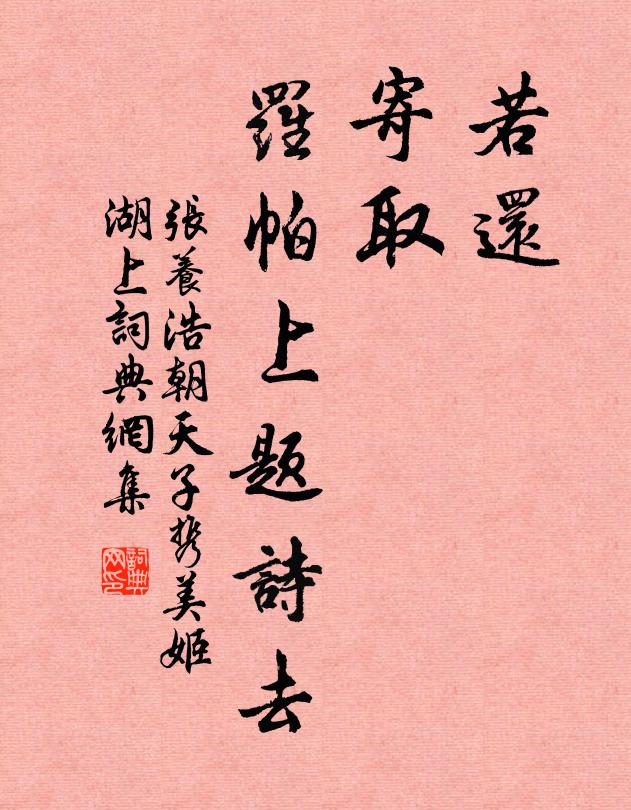 若還
寄取
羅帕上題詩去
張養浩朝天子携美姬
湖上詞典網集
詞典
网印